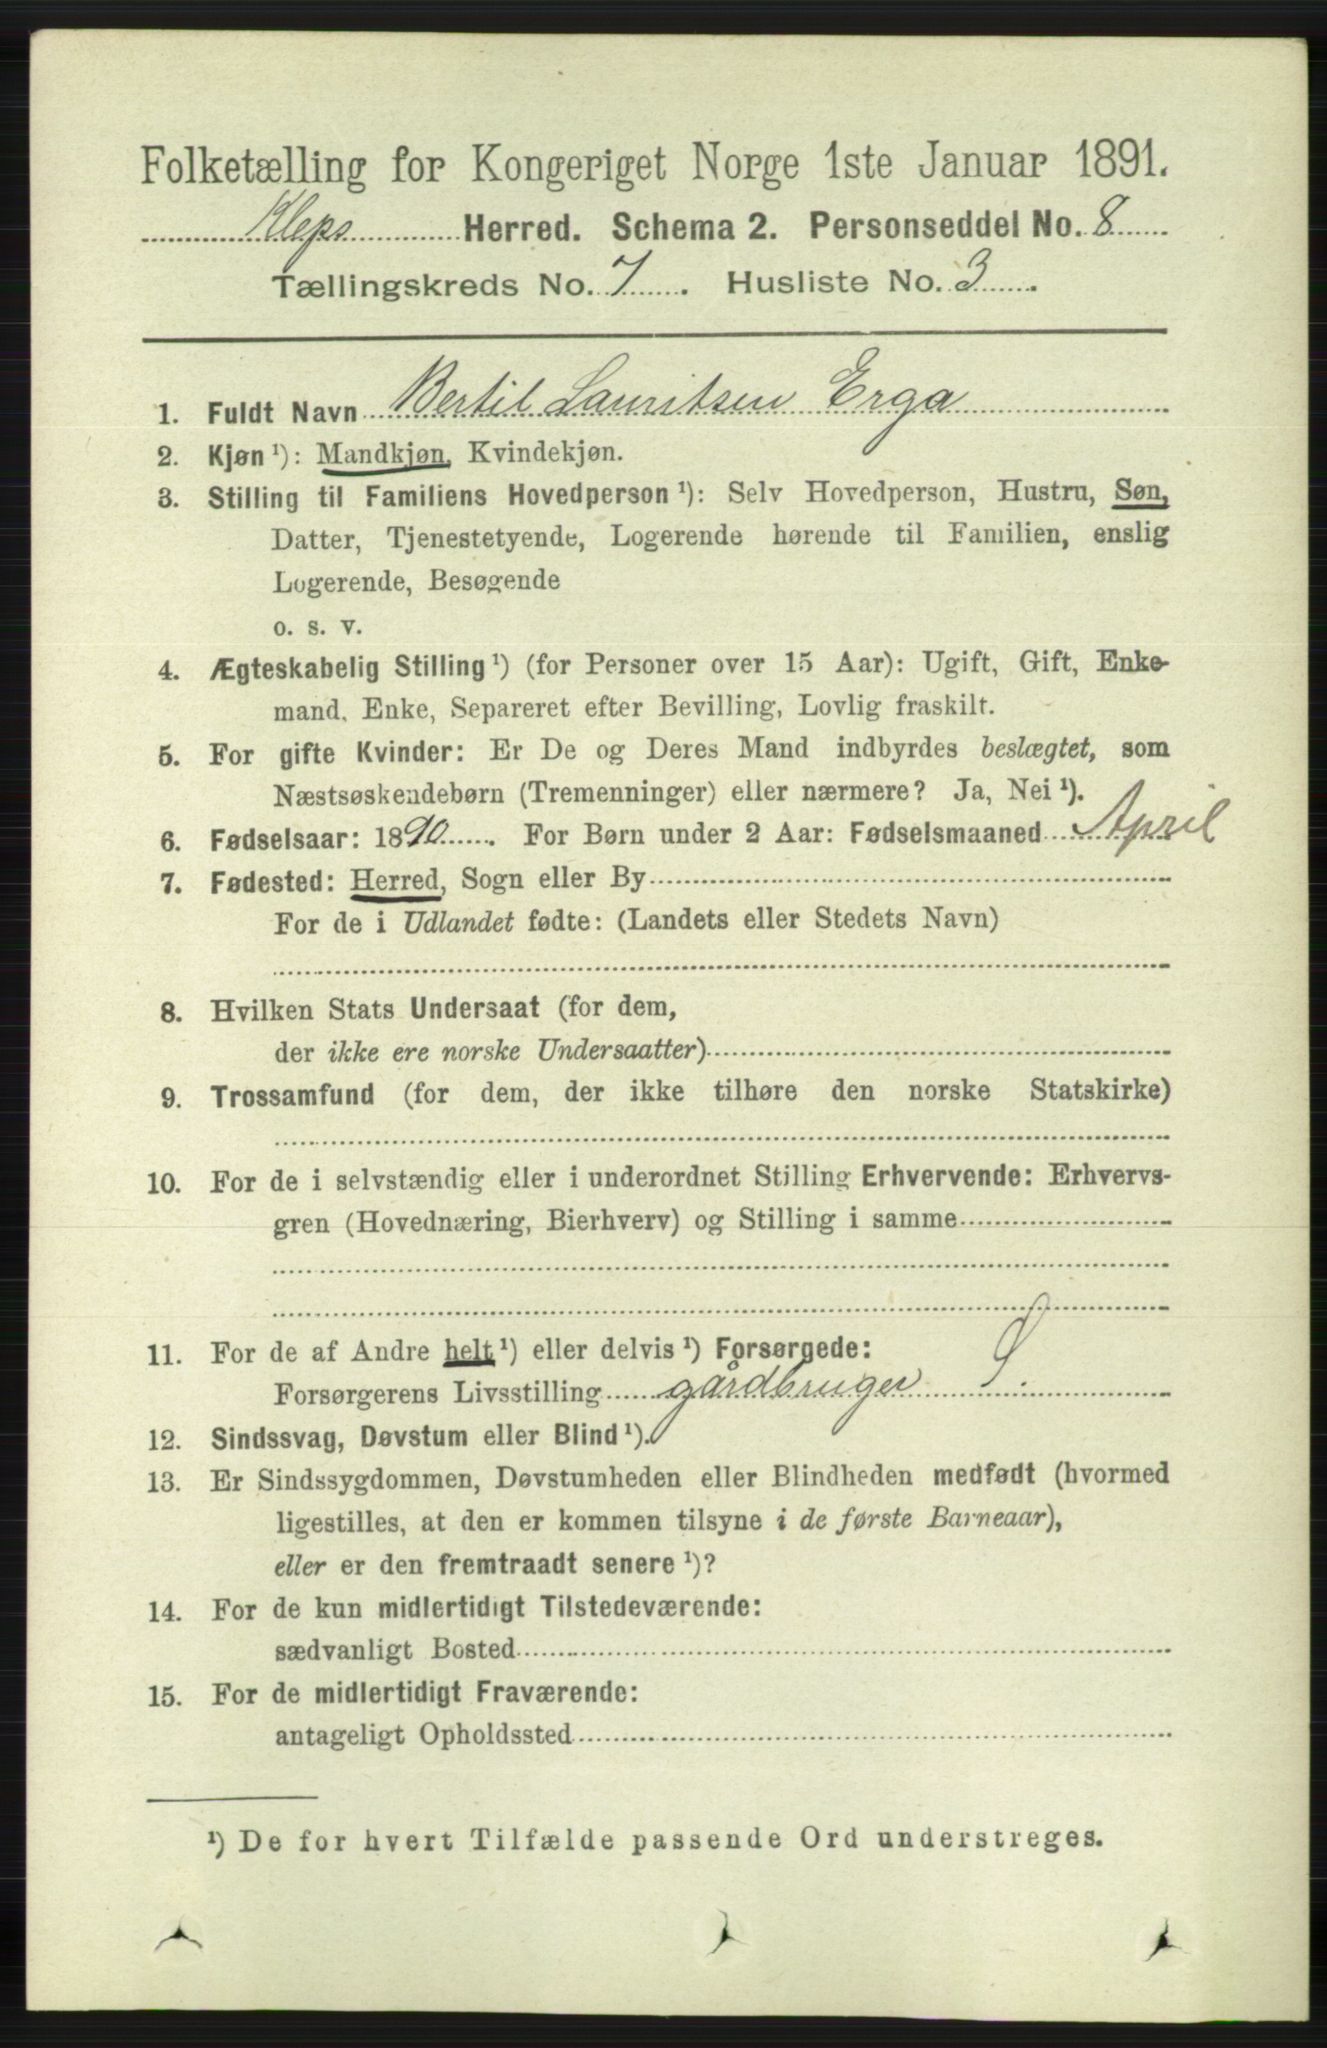 Folketælling for Kongeriget Norge 1ste Januar 1891.
Kleps Herred. Schema 2. Personseddel No. 8
Tællingskreds No. 7. Husliste No. 3.
1. Fuldt Navn Bertil Lauritsen Erga
2. Kjøn ¹): Mandkjøn, Kvindekjøn.
3. Stilling til Familiens Hovedperson ¹): Selv Hovedperson, Hustru, Søn,
Datter, Tjenestetyende, Logerende hørende til Familien, enslig
Logerende, Besøgende
o. s. v.
4. Ægteskabelig Stilling ¹) (for Personer over 15 Aar): Ugift, Gift, Enke-
mand, Enke, Separeret efter Bevilling, Lovlig fraskilt.
5. For gifte Kvinder: Er De og Deres Mand indbyrdes beslægtet, som
Næstsøskendebørn (Tremenninger) eller nærmere? Ja, Nei ¹).
6. Fødselsaar: 1890. For Børn under 2 Aar: Fødselsmaaned April
7. Fødested: Herred, Sogn eller By
For de i Udlandet fødte: (Landets eller Stedets Navn)
8. Hvilken Stats Undersaat (for dem,
der ikke ere norske Undersaatter)
9. Trossamfund (for dem, der ikke tilhøre den norske Statskirke)
10. For de i selvstændig eller i underordnet Stilling Erhvervende: Erhvervs-
gren (Hovednæring, Bierhverv) og Stilling i samme
11. For de af Andre helt ¹) eller delvis ¹) Forsørgede:
Forsørgerens Livsstilling gårdbruger S.
12. Sindssvag, Døvstum eller Blind ¹).
13. Er Sindssygdommen, Døvstumheden eller Blindheden medfødt (hvormed
ligestilles, at den er kommen tilsyne i de første Barneaar),
eller er den fremtraadt senere ¹)?
14. For de kun midlertidigt Tilstedeværende:
sædvanligt Bosted
15. For de midlertidigt Fraværende:
antageligt Opholdssted
¹) De for hvert Tilfælde passende Ord understreges.